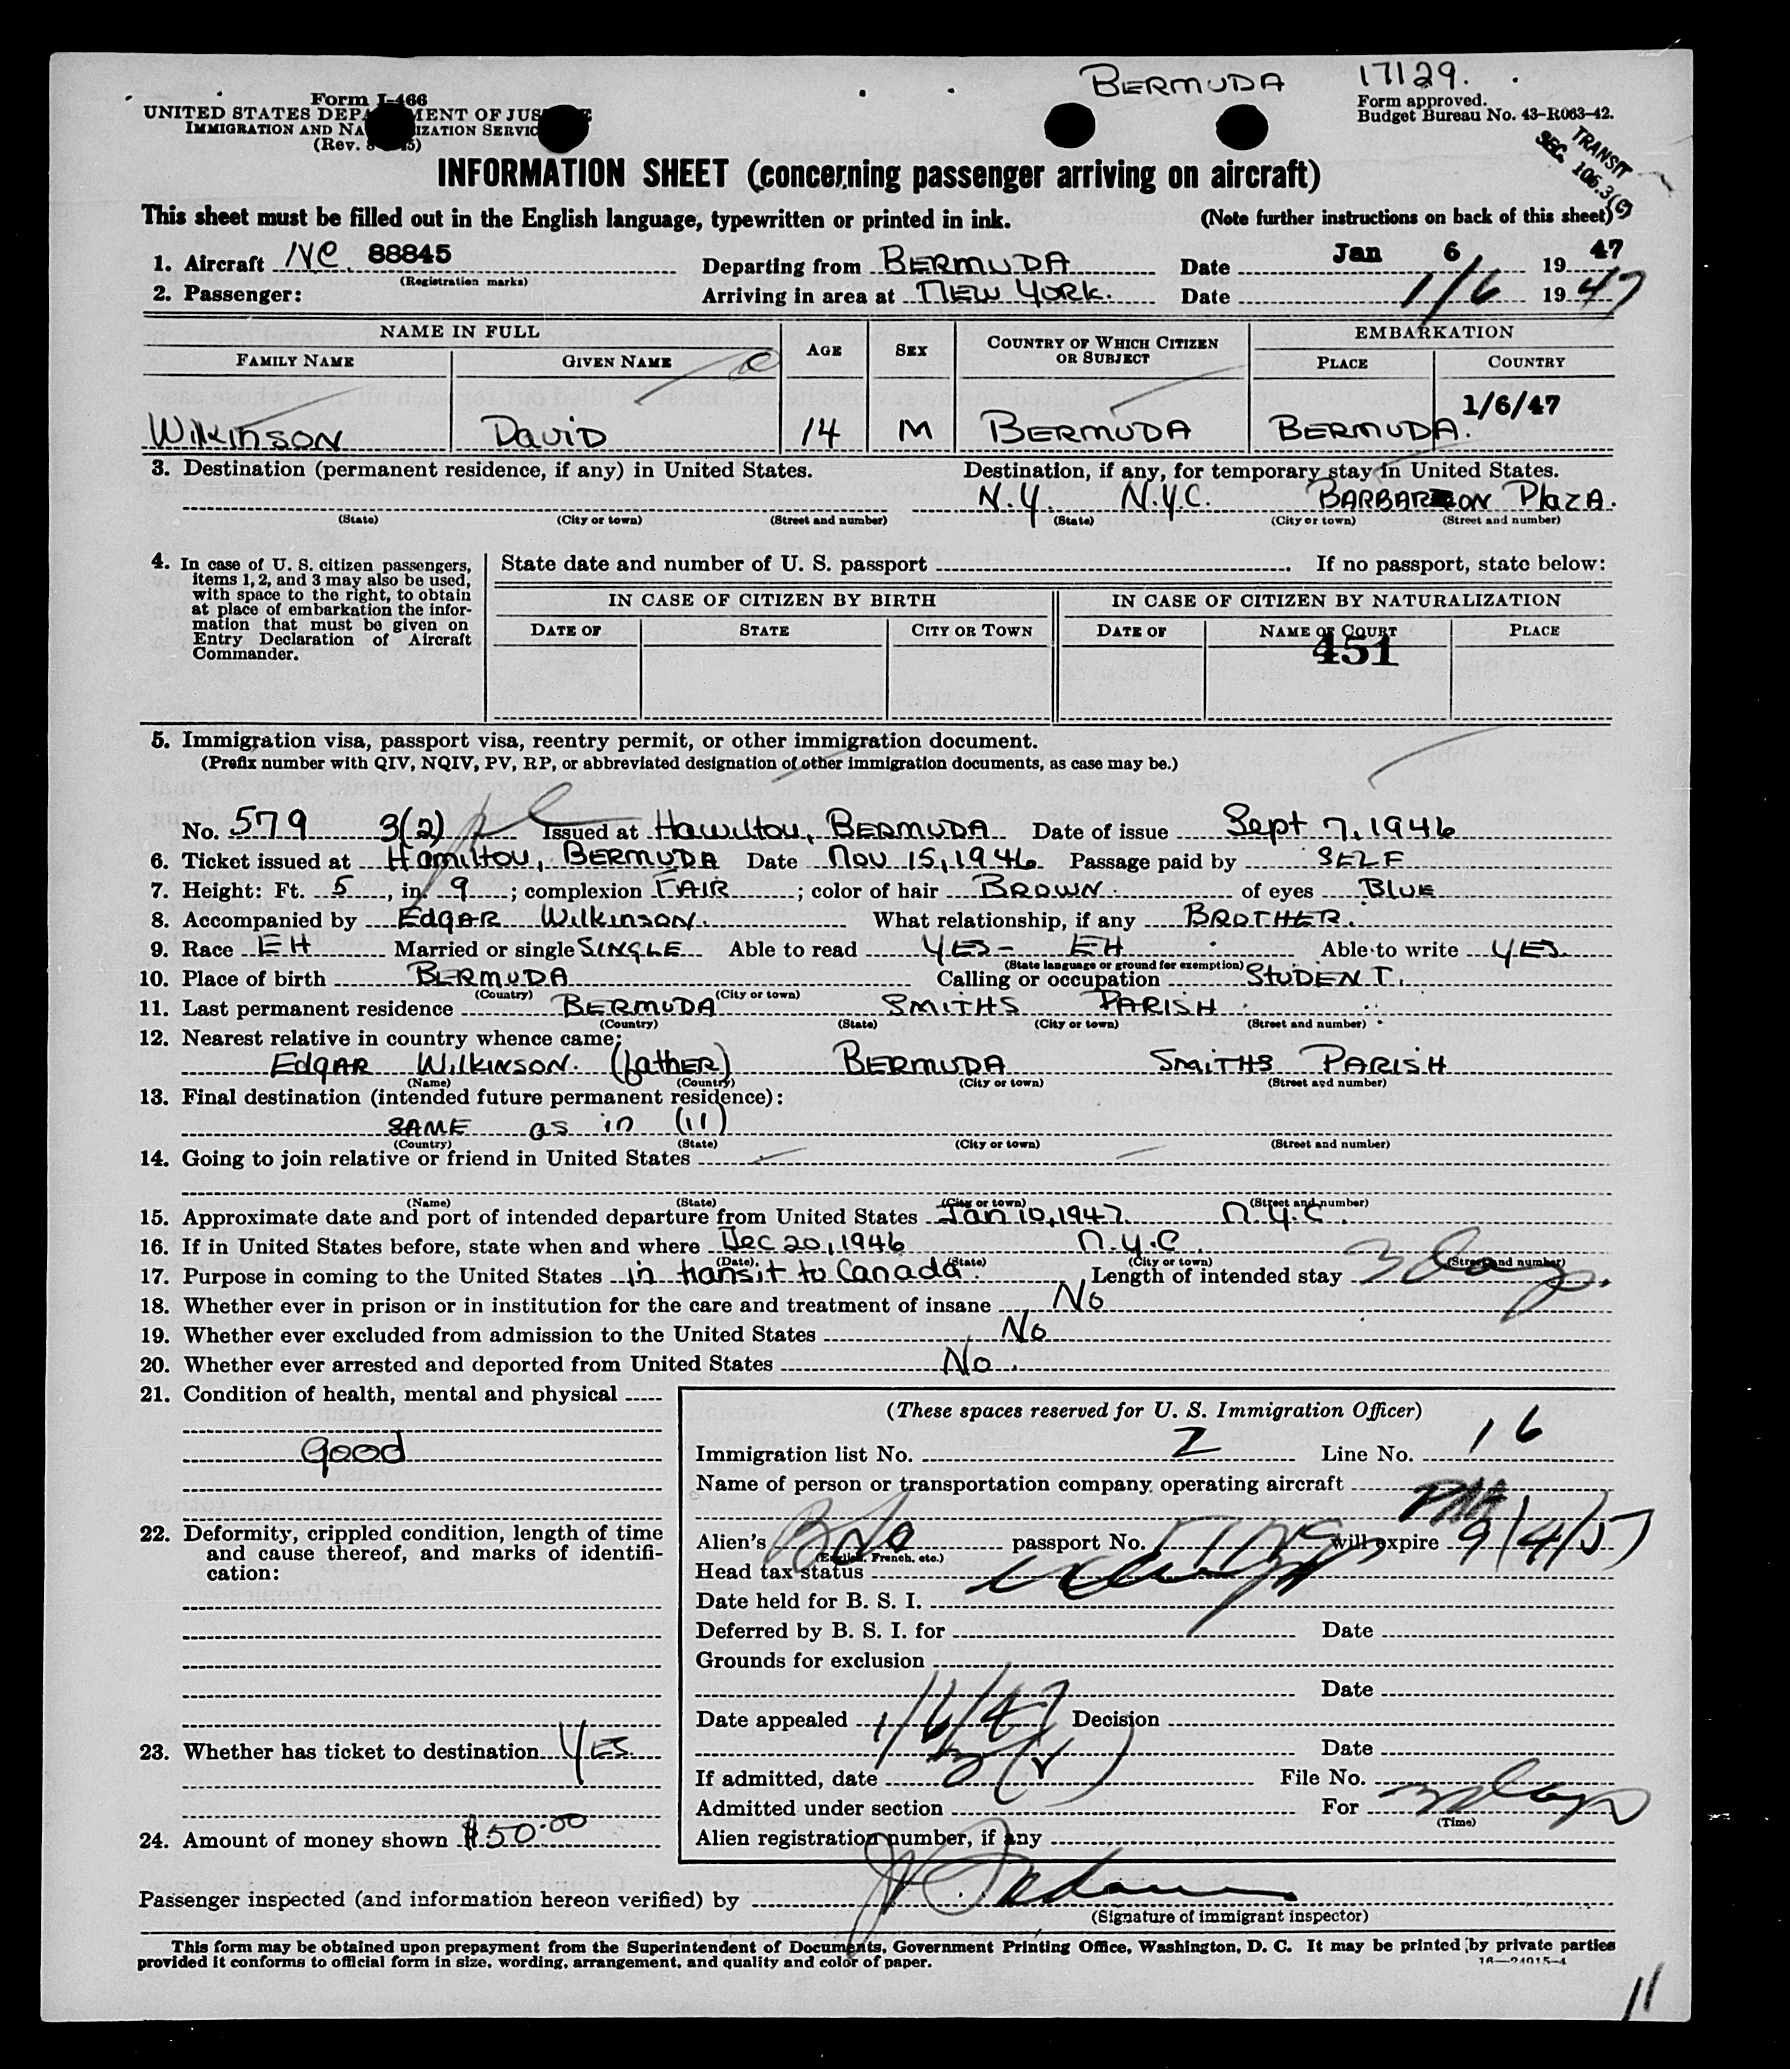 BERMUDA 17129.
Form I-466
UNITED STATES DEPARTMENT OF JUSTICE
IMMIGRATION AND NATURALIZATION SERVICE
(Rev. 8 45)
Form approved.
Budget Bureau No. 43-R063-42.
TRANSIT
SEC. 106.3(G)
INFORMATION SHEET (concerning passenger arriving on aircraft)
This sheet must be filled out in the English language, typewritten or printed in ink. (Note further instructions on back of this sheet)
1. Aircraft NC 88845 Departing from BERMUDA Date Jan 6 1947
(Registration marks)
2. Passenger: Arriving in area at NEW YORK. Date 1/6 1947
NAME IN FULL AGE SEX COUNTRY OF WHICH CITIZEN OR SUBJECT EMBARKATION
FAMILY NAME GIVEN NAME PLACE COUNTRY
1/6/47
WILKINSON DAVID 14 M BERMUDA BERMUDA.
3. Destination (permanent residence, if any) in United States. Destination, if any, for temporary stay in United States.
N.Y. N.Y.C. BARBARZON PlazA.
(State) (City or town) (Street and number) (State) (City or town) (Street and number)
4. In case of U. S. citizen passengers, items 1, 2, and 3 may also be used, with space to the right, to obtain at place of embarkation the information that must be given on Entry Declaration of Aircraft Commander.
State date and number of U. S. passport If no passport, state below:
IN CASE OF CITIZEN BY BIRTH IN CASE OF CITIZEN BY NATURALIZATION
DATE OF STATE CITY OR TOWN DATE OF NAME OF COURT PLACE
451
5. Immigration visa, passport visa, reentry permit, or other immigration document.
(Prefix number with QIV, NQIV, PV, RP, or abbreviated designation of other immigration documents, as case may be.)
No. 579 3(2) Issued at Hamilton, BERMUDA Date of issue Sept 7, 1946
6. Ticket issued at Hamilton, BERMUDA Date Nov 15, 1946 Passage paid by SELF
7. Height: Ft. 5, in. 9; complexion FAIR; color of hair BROWN. of eyes BLUE
8. Accompanied by EdgAR WilkinsoN. What relationship, if any BROTHER.
9. Race EH Married or single SINGLE Able to read YES- EH Able to write YES.
(State language or ground for exemption)
10. Place of birth BERMUDA Calling or occupation STUDENT.
(Country) (City or town)
11. Last permanent residence BERMUDA SMITHS PARISH
(Country) (State) (City or town) (Street and number)
12. Nearest relative in country whence came:
EdgAR WILKINSON. (fatHER) BERMUDA SMITHS PARISH
(Name) (Country) (City or town) (Street and number)
13. Final destination (intended future permanent residence):
SAME as in (11)
(Country) (State) (City or town) (Street and number)
14. Going to join relative or friend in United States
(Name) (State) (City or town) (Street and number)
15. Approximate date and port of intended departure from United States Jan 10, 1947 N.Y.C.
16. If in United States before, state when and where Dec 20, 1946 N.Y.C.
(Date) (State) (City or town) (Street and number)
17. Purpose in coming to the United States in transit to Canada. Length of intended stay 3 days.
18. Whether ever in prison or in institution for the care and treatment of insane No
19. Whether ever excluded from admission to the United States No
20. Whether ever arrested and deported from United States No.
21. Condition of health, mental and physical
Good
22. Deformity, crippled condition, length of time and cause thereof, and marks of identification:
23. Whether has ticket to destination YES.
24. Amount of money shown $50.00
(These spaces reserved for U. S. Immigration Officer)
Immigration list No. 2 Line No. 16
Name of person or transportation company operating aircraft PAA
Alien's passport No. will expire 9/4/57
(English, French, etc.)
Head tax status
Date held for B. S. I.
Deferred by B. S. I. for Date
Grounds for exclusion
Date
Date appealed 1/6/47 Decision
Date
If admitted, date 3(2) File No.
Admitted under section For 3 days
(Time)
Alien registration number, if any
Passenger inspected (and information hereon verified) by
(Signature of immigrant inspector)
This form may be obtained upon prepayment from the Superintendent of Documents, Government Printing Office, Washington, D. C. It may be printed by private parties
provided it conforms to official form in size, wording, arrangement, and quality and color of paper.
16—24015-4
11